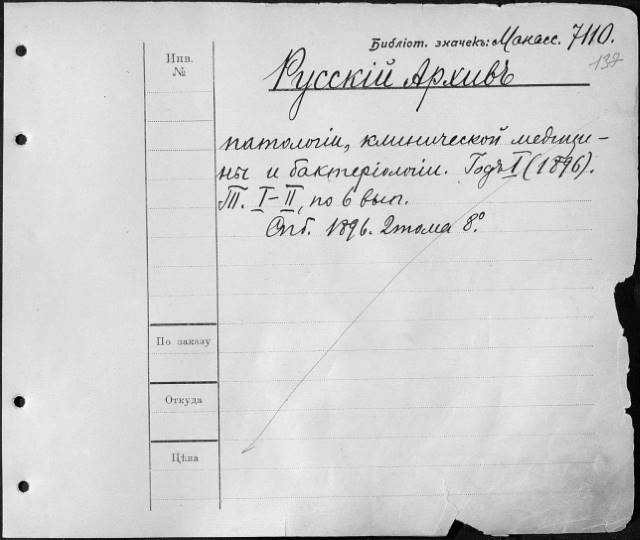 Библіот. значекъ: Манасс. 7110.
137
Инв.
№
Русскій Архивъ
патологіи, клинической медици-
ны и бактеріологіи. Годъ I (1896).
Т. I-II, по 6 вып.
Спб. 1896. 2 тома 8º.
По заказу
Откуда
Цѣна